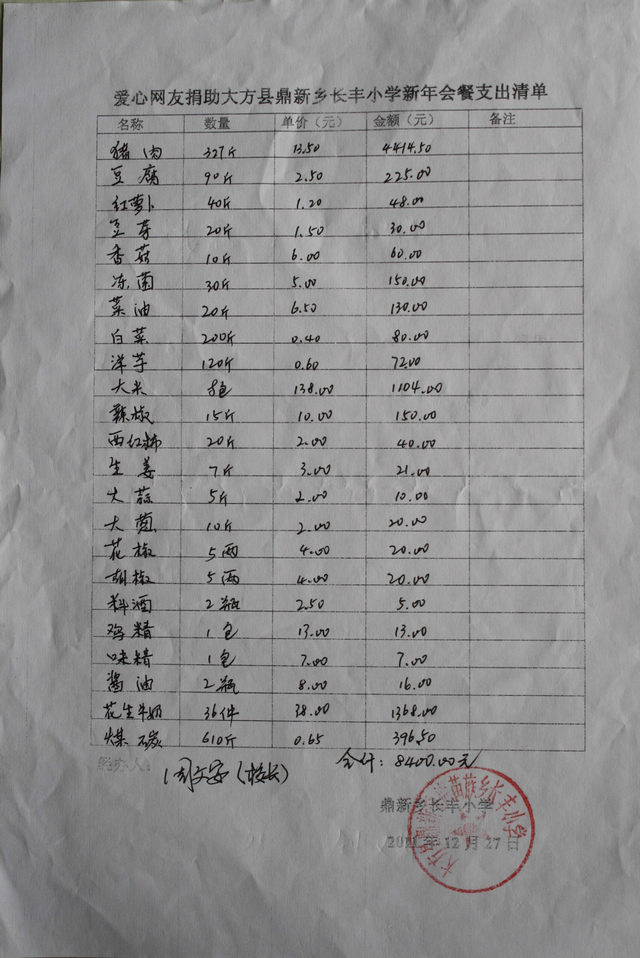 爱心网友捐助大方县鼎新乡长丰小学新年会餐支出清单
名称 数量 单价（元） 金额（元） 备注
猪肉 327斤 13.50 4414.50
豆腐 90斤 2.50 225.00
红萝卜 40斤 1.20 48.00
豆芽 20斤 1.50 30.00
香菇 10斤 6.00 60.00
冻菌 30斤 5.00 150.00
菜油 20斤 6.50 130.00
白菜 200斤 0.40 80.00
洋芋 120斤 0.60 72.00
大米 8包 138.00 1104.00
辣椒 15斤 10.00 150.00
西红柿 20斤 2.00 40.00
生姜 7斤 3.00 21.00
大蒜 5斤 2.00 10.00
大葱 10斤 2.00 20.00
花椒 5两 4.00 20.00
胡椒 5两 4.00 20.00
料酒 2瓶 2.50 5.00
鸡精 1包 13.00 13.00
味精 1包 7.00 7.00
酱油 2瓶 8.00 16.00
花生牛奶 36件 38.00 1368.00
煤碳 610斤 0.65 396.50
经办人： (校长) 合计：8400.00元
鼎新乡长丰小学
年12月27日
苗族乡长丰小学